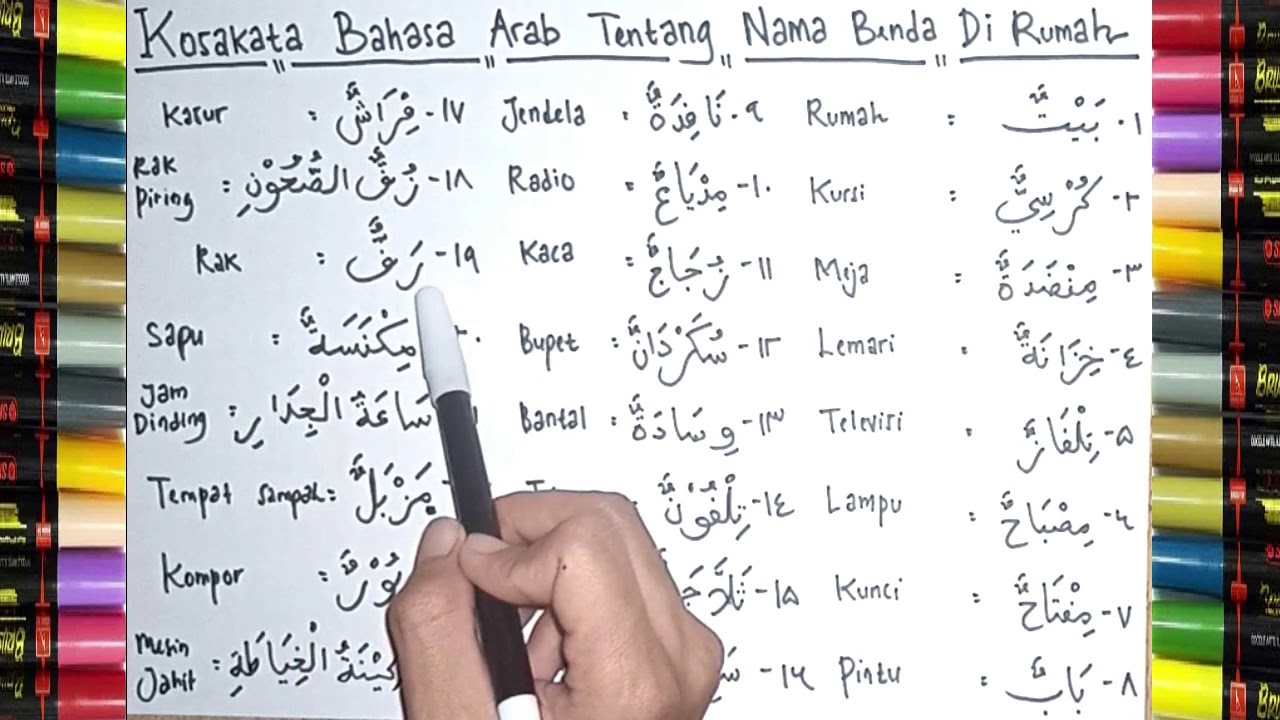 Kosakata Bahasa Arab Tentang Nama Benda Di Rumah
١. بَيْتٌ : Rumah
٢- كُرْسِيٌّ : Kursi
٣- مِنْضَدَةٌ : Meja
٤- خِزَانَةٌ : Lemari
٥- تِلْفَازٌ : Televisi
٦- مِصْبَاحٌ : Lampu
٧- مِفْتَاحٌ : Kunci
٨- بَابٌ : Pintu
٩. نَافِدَةٌ : Jendela
١٠- مِدْيَاعٌ : Radio
١١- زُجَاجٌ : Kaca
١٢- سُكَرْدَانٌ : Bupet
١٣- وِسَادَةٌ : Bantal
١٤- تِلْفُوْنٌ
١٥-
١٦-
١٧- فِرَاشٌ : Kasur
١٨- رُفُّ الصُّحُوْنِ : Rak Piring
١٩- رَفٌّ : Rak
مِكْنَسَةٌ : Sapu
سَاعَةُ الْجِدَارِ : Jam Dinding
مَزْبَلٌ : Tempat sampah
Kompor
الْخِيَاطَةِ : Mesin Jahit